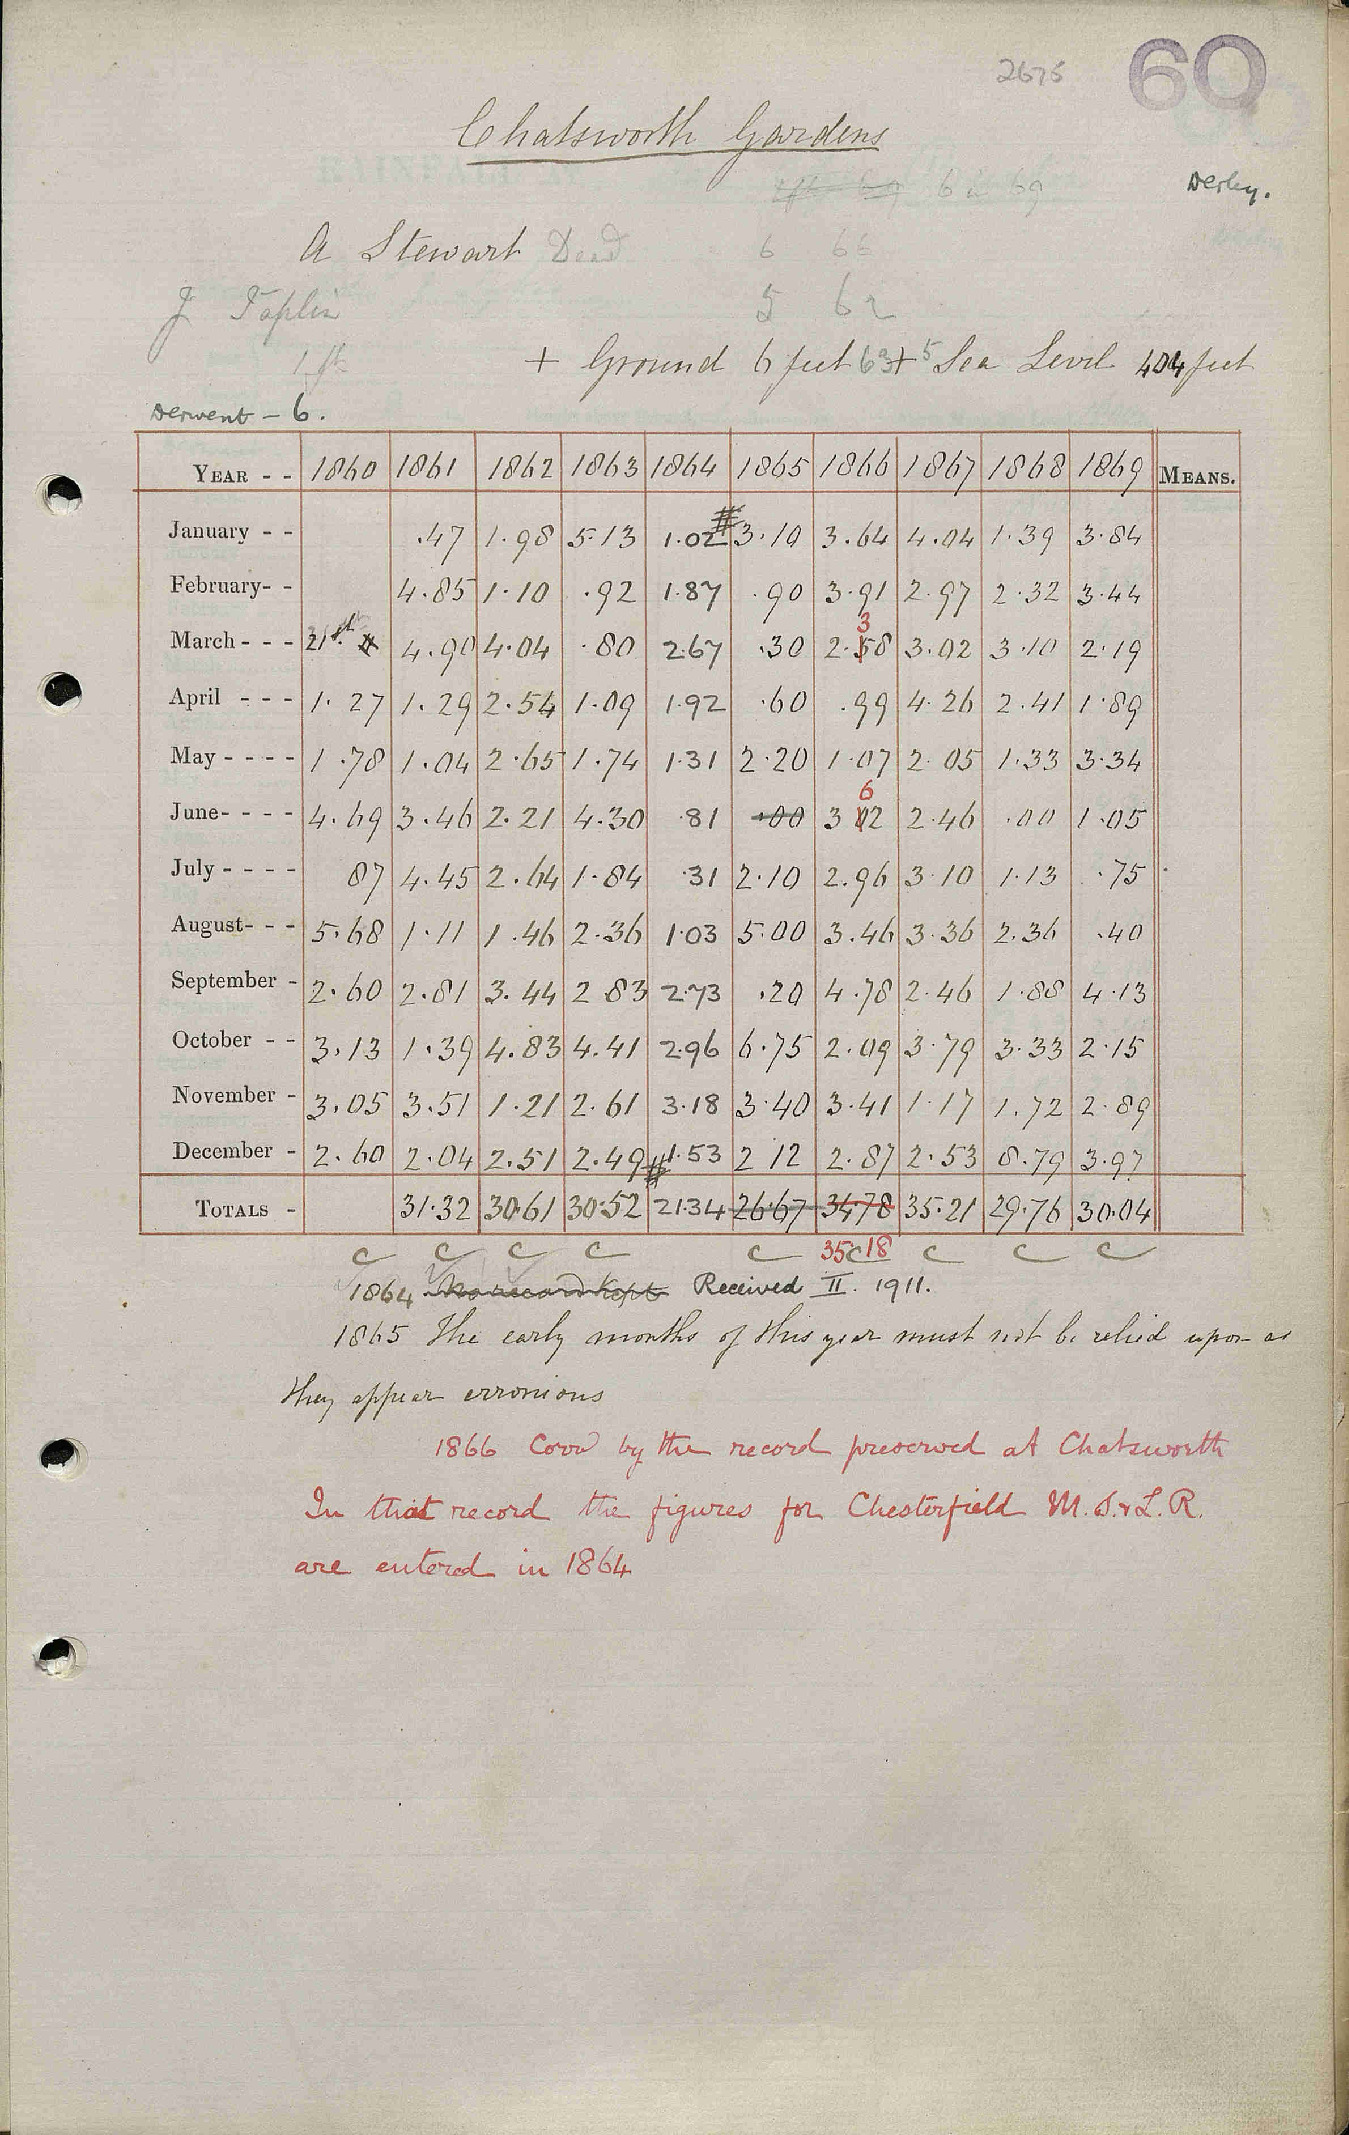 2675 60
Chatsworth Gardens
6 in 69 Derby.
A Stewart Dead 6 66
J Taplin 5 62
1 ft + Ground 6 feet 63 + 5 Sea Level 404 feet
Derwent - 6.
YEAR - - 1860 1861 1862 1863 1864 1865 1866 1867 1868 1869 MEANS.
January - - .47 1.98 5.13 1.02 # 3.10 3.64 4.04 1.39 3.84
February- - 4.85 1.10 .92 1.87 .90 3.91 2.97 2.32 3.44
3
March - - - 4.90 4.04 .80 2.67 .30 2.58 3.02 3.10 2.19
April - - - 1.27 1.29 2.54 1.09 1.92 .60 .99 4.26 2.41 1.89
May - - - - 1.78 1.04 2.65 1.74 1.31 2.20 1.07 2.05 1.33 3.34
6
June- - - - 4.69 3.46 2.21 4.30 .81 .00 3 02 2.46 .00 1.05
July - - - - 87 4.45 2.64 1.84 .31 2.10 2.96 3.10 1.13 .75
August- - - 5.68 1.11 1.46 2.36 1.03 5.00 3.46 3.36 2.36 .40
September - 2.60 2.81 3.44 2 83 2.73 .20 4.78 2.46 1.88 4.13
October - - 3.13 1.39 4.83 4.41 2.96 6.75 2.09 3.79 3.33 2.15
November - 3.05 3.51 1.21 2.61 3.18 3.40 3.41 1.17 1.72 2.89
December - 2.60 2.04 2.51 2.49 # 1.53 2 12 2.87 2.53 8.79 3.97
TOTALS - 31.32 30.61 30.52 21.34 26.67 34.78 35.21 29.76 30.04
c c c c c 35.18 c c c c
1864 No record kept Received II. 1911.
1865 The early months of this year must not be relied upon as
they appear erronious
1866 Corrd by the record preserved at Chatsworth
In that record the figures for Chesterfield M.S.&L.R.
are entered in 1864